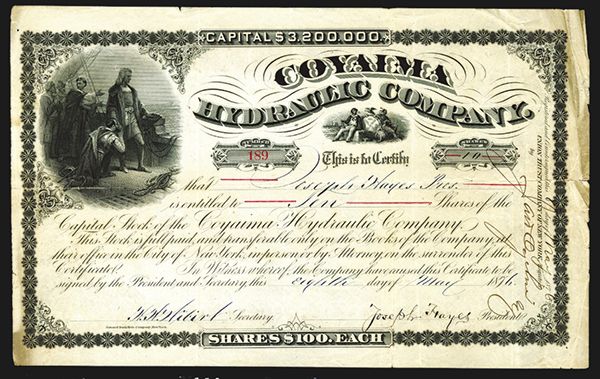 CAPITAL $3,200,000.
COYAIMA
HYDRAULIC COMPANY.
NUMBER
189
This is to Certify
SHARES
10
that Joseph Hayes Pres.
is entitled to Ten Shares of the
Capital Stock of the Coyaima Hydraulic Company.
This Stock is full paid, and transferable only on the Books of the Company, at
their office in the City of New York, in person or by Attorney on the surrender of this
Certificate. In Witness whereof, the Company have caused this Certificate to be
signed by the President and Secretary, this eighth day of May 1896.
Secretary. Joseph Hayes President.
SHARES $100. EACH
UNION TRUST COMPANY OF NEW YORK,
by